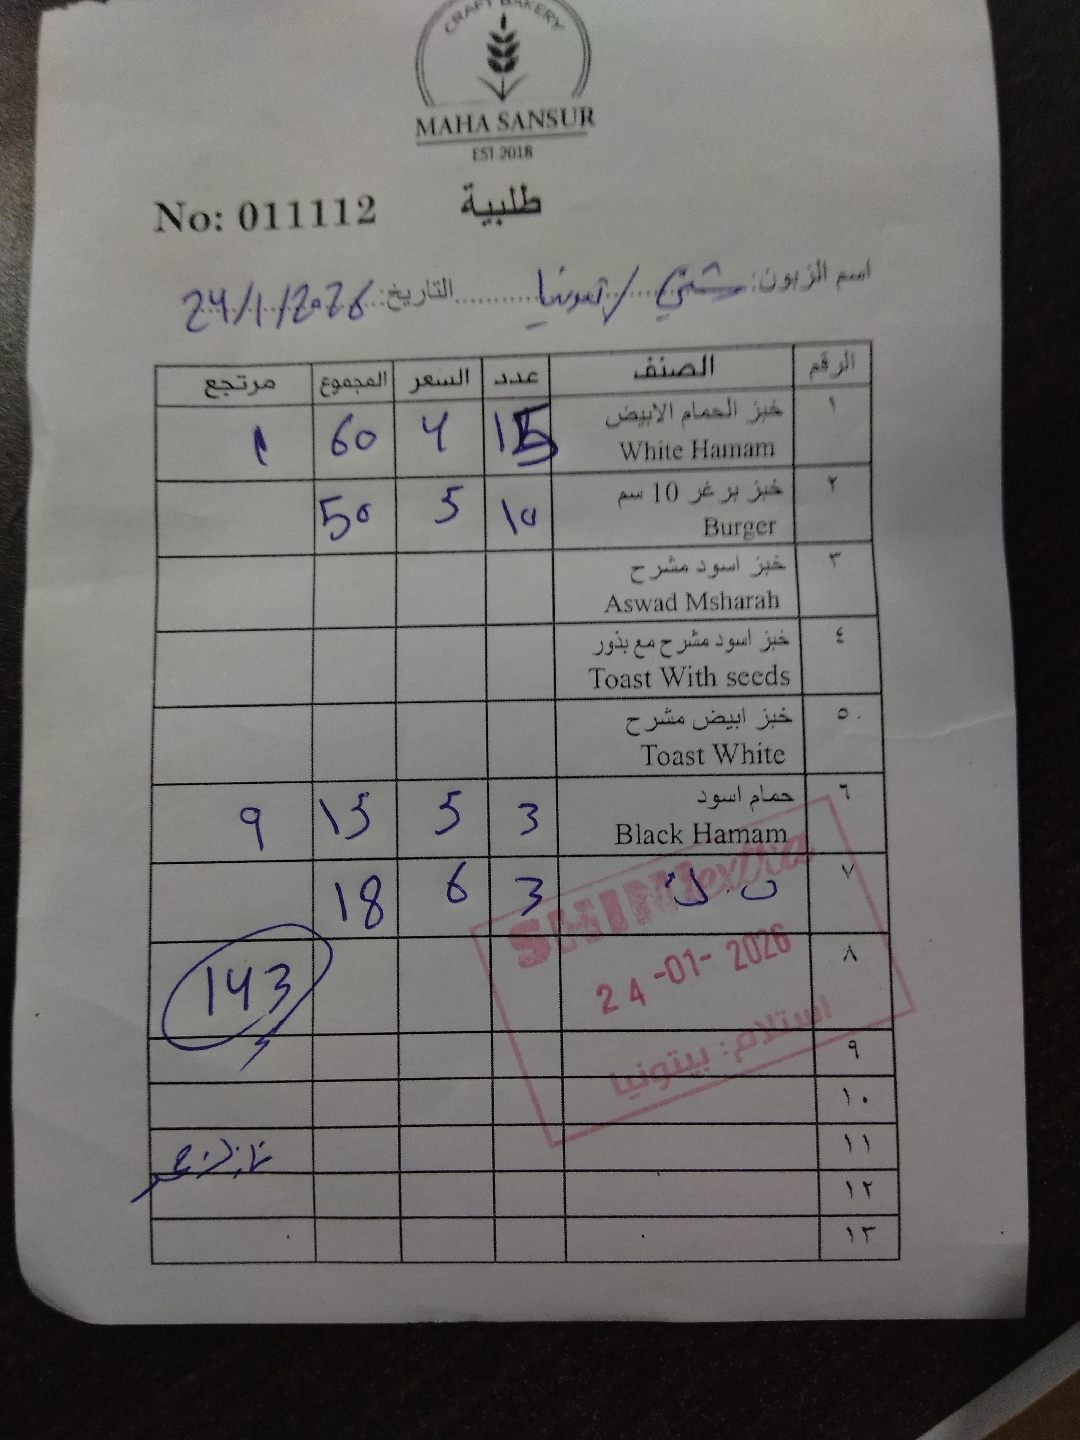 CRAFT BAKERY
MAHA SANSUR
EST 2018
No: 011112 طلبية
اسم الزبون: التاريخ: 24/1/2026
الرقم الصنف عدد السعر المجموع مرتجع
١ خبز الحمام الابيض 15 4 60 1
White Hamam
٢ خبز برغر 10 سم 10 5 50
Burger
٣ خبز اسود مشرح
Aswad Msharah
٤ خبز اسود مشرح مع بذور
Toast With seeds
٥ خبز ابيض مشرح
Toast White
٦ حمام اسود 3 5 15 9
Black Hamam
٧ 3 6 18
٨ 143
SHINI extra
24-01-2026
استلام: بيتونيا
٩
١٠
١١
١٢
١٣